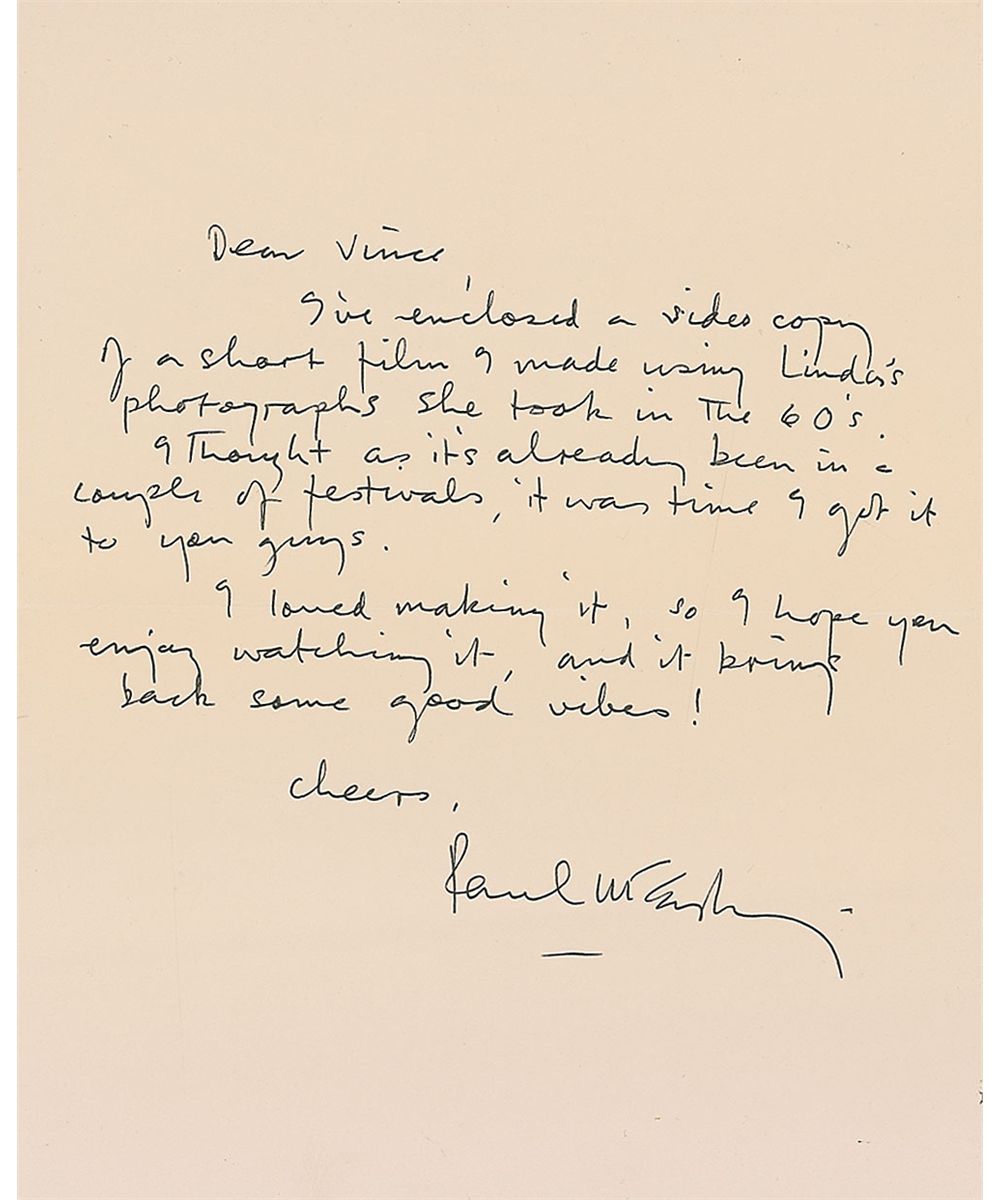 Dear Vince,
I've enclosed a video copy
of a short film I made using Linda's
photographs she took in The 60's.
I Thought as it's already been in a
couple of festivals, it was time I got it
to you guys.
I loved making it, so I hope you
enjoy watching it, and it brings
back some good vibes!
cheers,
Paul McCartney